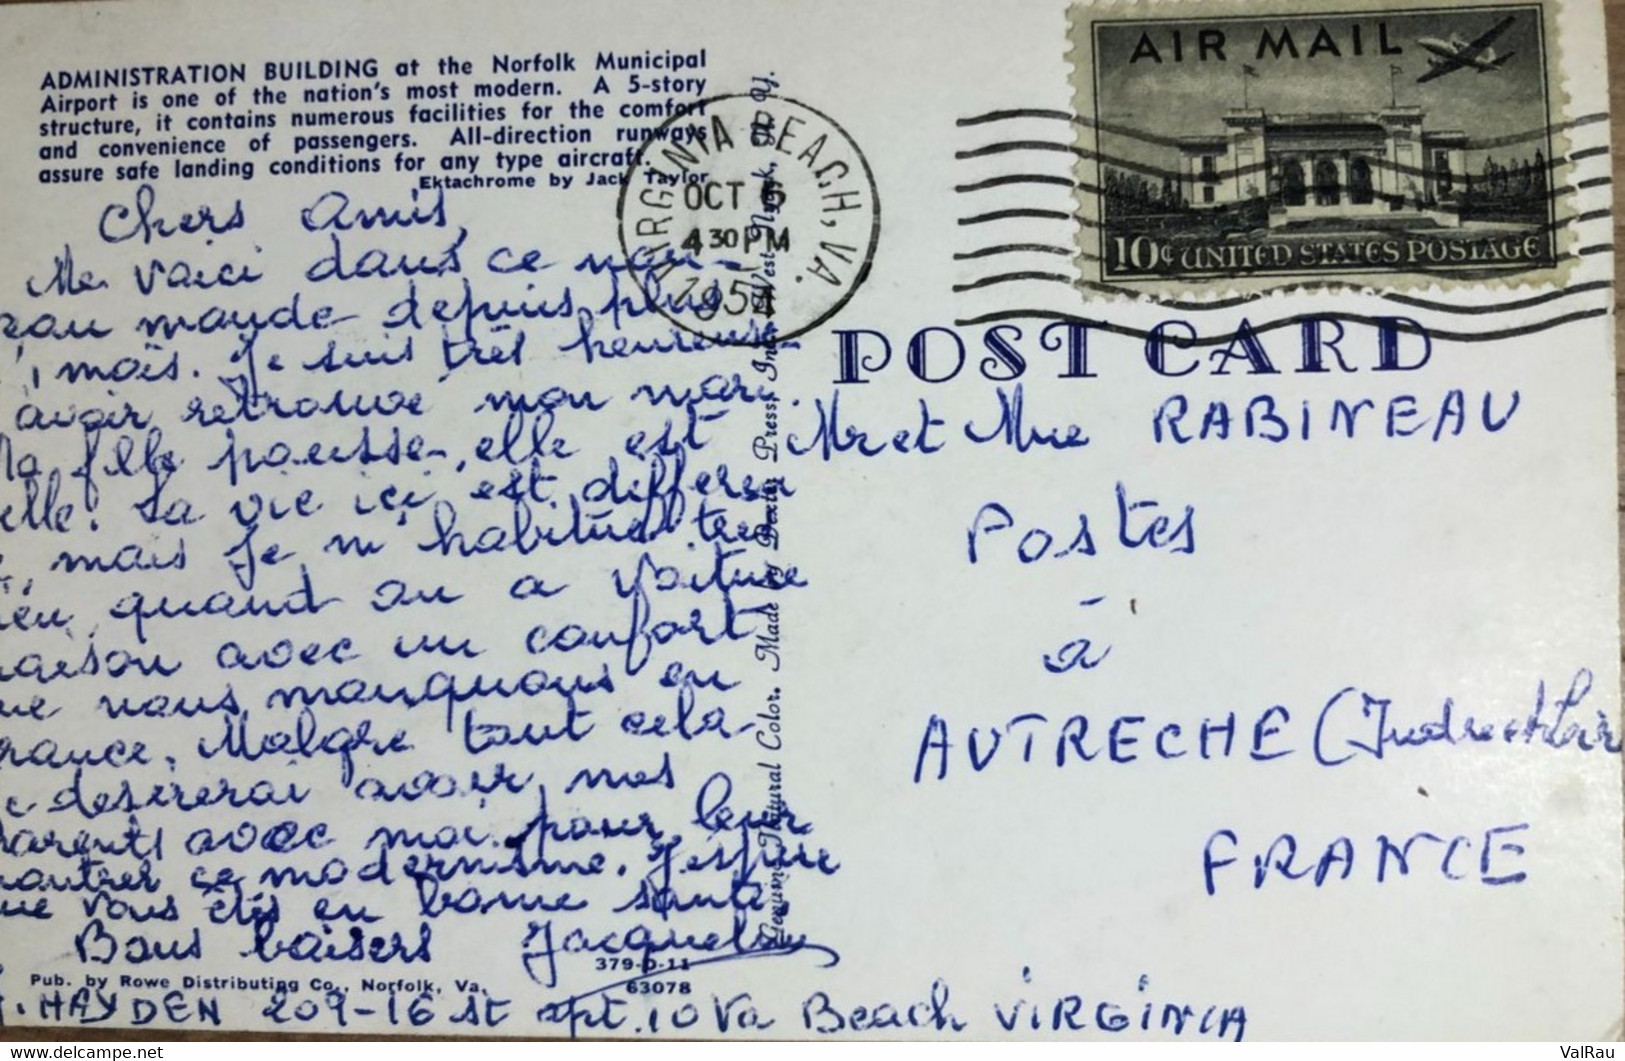 ADMINISTRATION BUILDING at the Norfolk Municipal
Airport is one of the nation's most modern. A 5-story
structure, it contains numerous facilities for the comfort
and convenience of passengers. All-direction runways
assure safe landing conditions for any type aircraft.
Ektachrome by Jack Taylor
Chers Amis,
Me voici dans ce nou-
eau monde depuis plus
1 mois. Je suis très heureuse
avoir retrouvé mon mari.
Ma fille pousse, elle est
elle. La vie ici est différen
, mais je m'habitue très
ien quand on a voiture
maison avec un confort
ue nous manquons en
rance. Malgré tout cela
e desirerai avoir mes
parents avec moi pour leur
montrer ce modernisme. J'espère
ue vous êtes en bonne santé,
Bons baisers Jacqueline
379-D-11
Pub. by Rowe Distributing Co., Norfolk, Va.
63078
. HAYDEN 209-16 st apt. 10 Va Beach VIRGINIA
Genuine Natural Color. Made by Dexter Press, Inc. West Nyack, N. Y.
VIRGINIA BEACH, VA.
OCT 6
4 30 PM
1954
AIR MAIL
10¢ UNITED STATES POSTAGE
POST CARD
Mr et Mme RABINEAU
Postes
à
AUTRECHE (Indre et Loire
FRANCE
ValRau